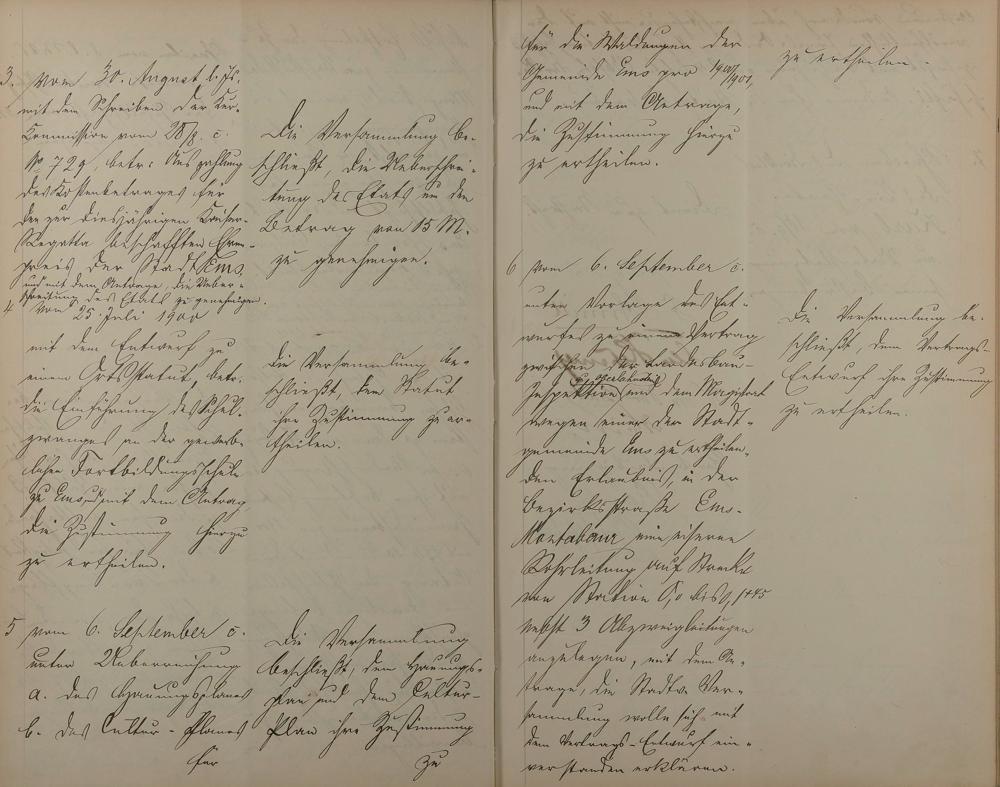 3. vom 30. August l. Js.
mit dem Schreiben der Kur-
Commission vom 28/8. c.
No 729, betr: Auszahlung
des Kostenbetrages für
den zur diesjährigen Kaiser-
Regatta beschafften Ehren-
preis der Stadt Ems.
und mit dem Antrage, die Ueber-
schreitung des Etats zu genehmigen.
Die Versammlung be-
schließt, die Ueberschrei-
tung des Etats um den
Betrag von 15 M.
zu genehmigen.
4 vom 25. Juli 1900
mit dem Entwurf zu
einem Ortsstatut, betr.
die Einführung des Schul-
zwanges an der gewerb-
lichen Fortbildungsschule
zu Ems, mit dem Antrag
die Zustimmung hierzu
zu ertheilen.
Die Versammlung be-
schließt, dem Statut
ihre Zustimmung zu er-
theilen.
5 vom 6. September c.
unter Ueberreichung
a. des Hauungsplanes
b. des Cultur-Planes
für
Die Versammlung
beschließt, dem Hauungs-
plan und dem Cultur-
Plan ihre Zustimmung
zu
für die Waldungen der
Gemeinde Ems pro 1900/1901,
und mit dem Antrage,
die Zustimmung hierzu
zu ertheilen.
zu ertheilen.
6 vom 6. September c.
unter Vorlage des Ent-
wurfes zu einem Vertrag
zwischen der Landesbau-
Inspektion und dem Magistrat
wegen einer der Stadt-
gemeinde Ems zu ertheilen-
den Erlaubniß, in der
Bezirksstraße Ems-
Montabaur eine eiserne
Rohrleitung auf Strecke
von Station 0,0 bis 0,1+45
nebst 3 Abzweigleitungen
anzulegen, mit dem An-
trage, die Stadtv. Ver-
sammlung wolle sich mit
dem Vertrags-Entwurf ein-
verstanden erklären.
Die Versammlung be-
schließt, dem Vertrags-
Entwurf ihre Zustimmung
zu ertheilen.